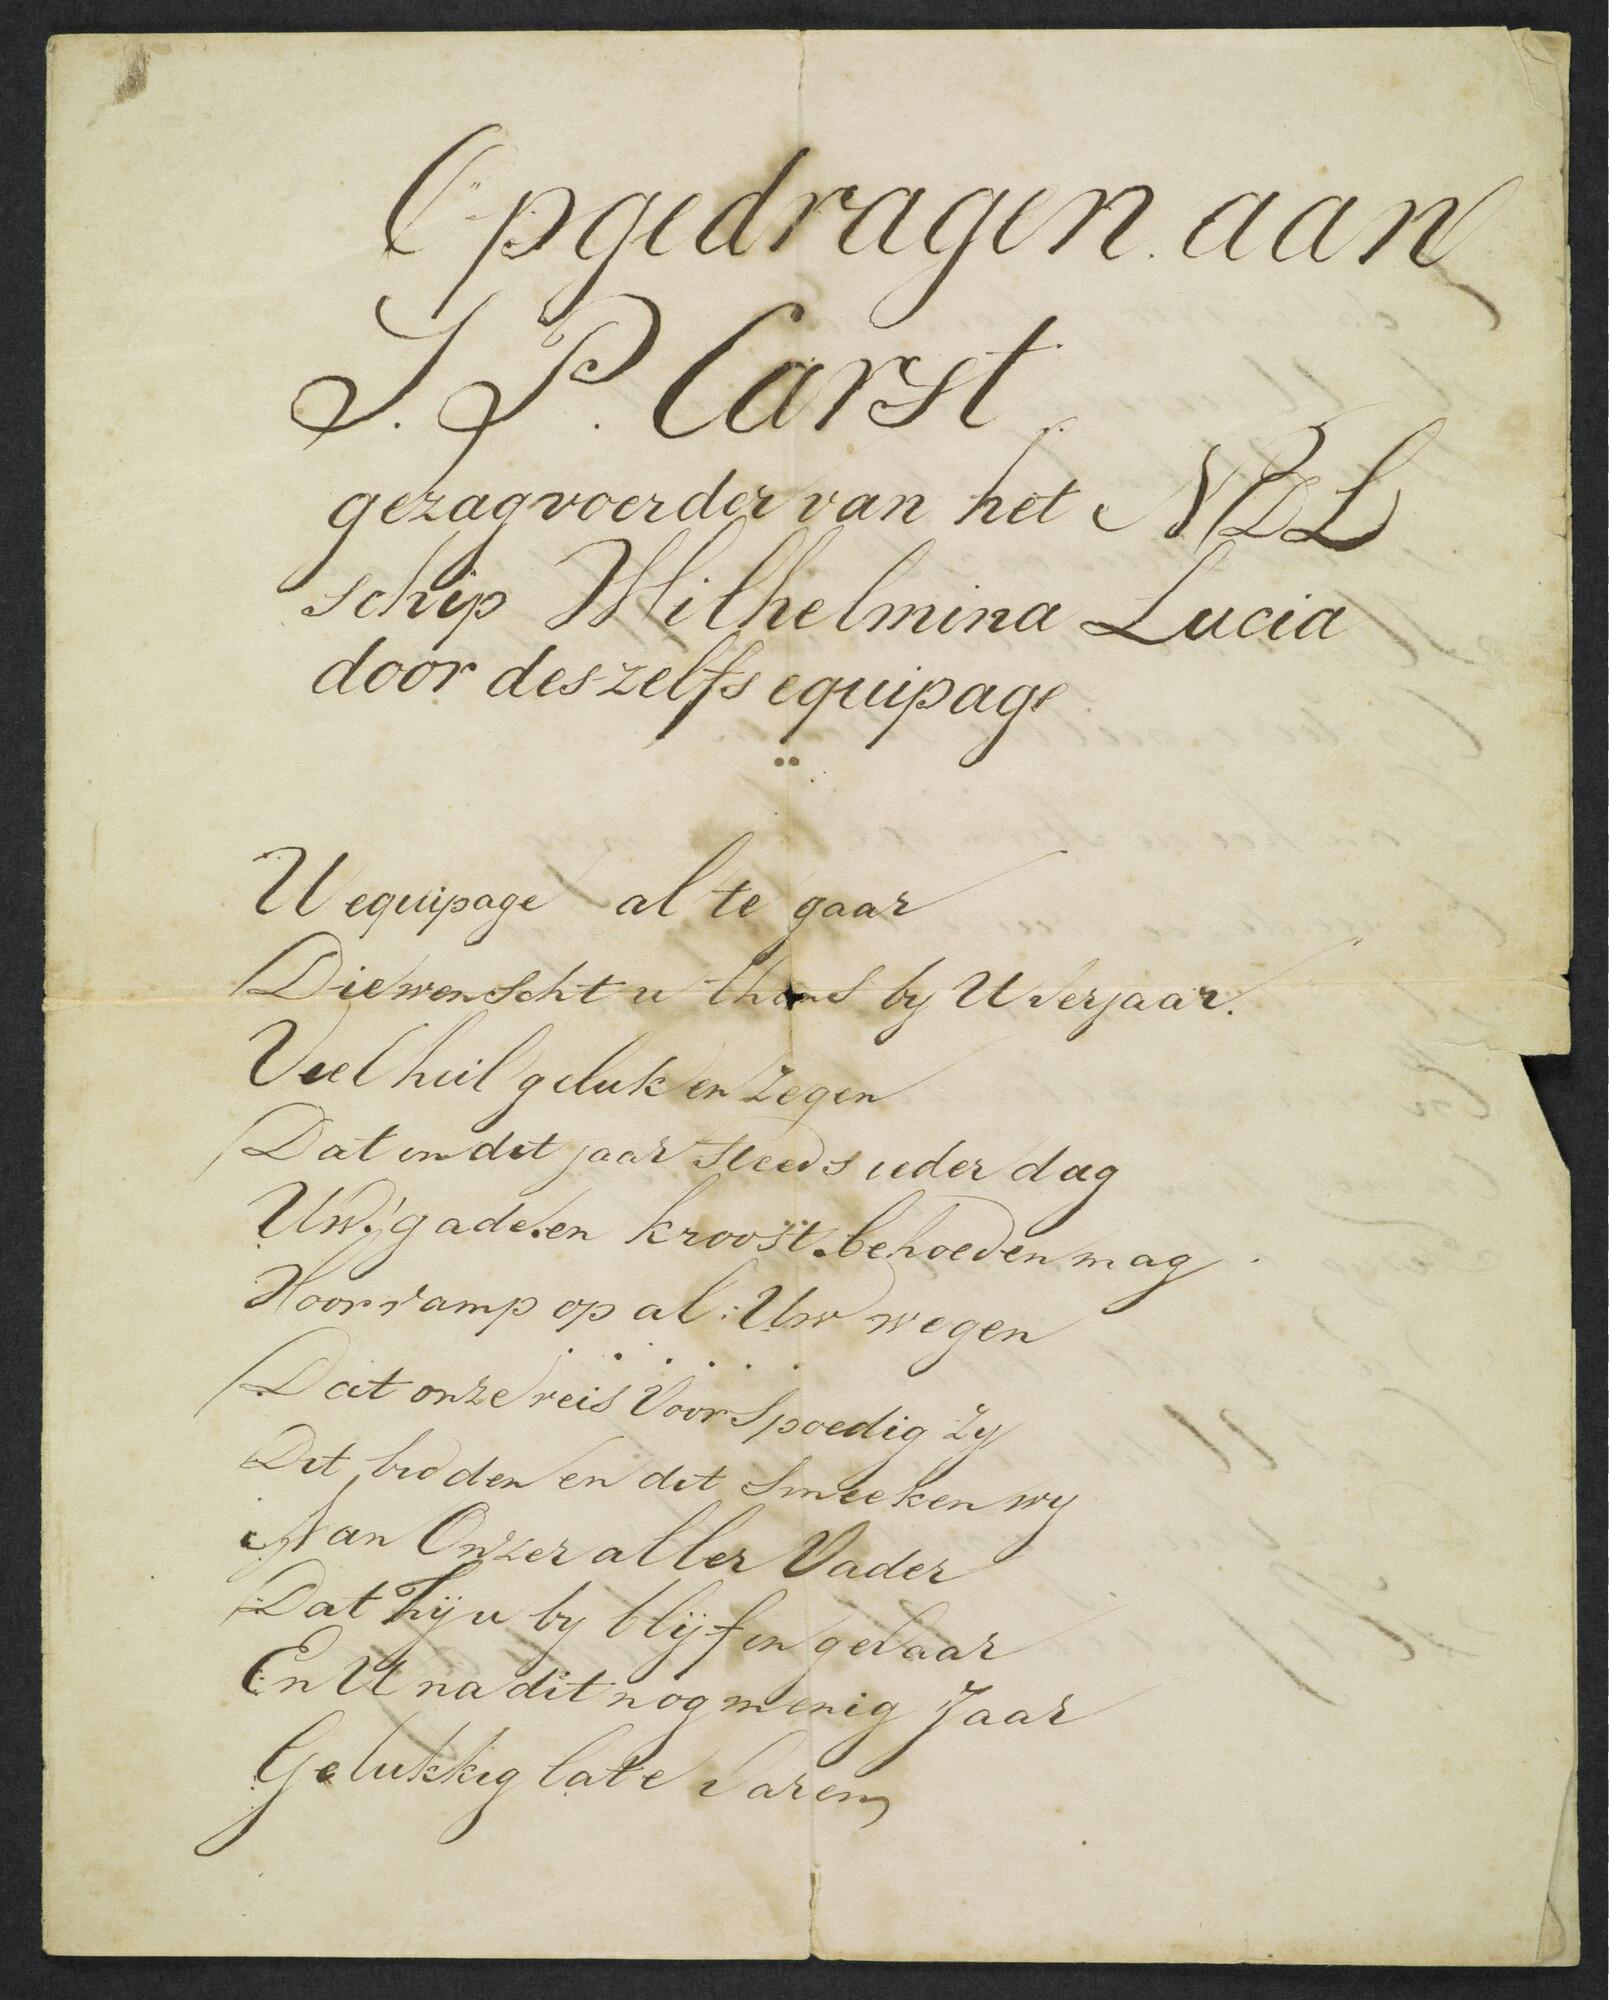 Opgedragen aan
S. P. Carst
gezagvoerder van het NDL
schip Wilhelmina Lucia
door deszelfs equipage
U equipage al te gaar
Die wenscht u thans by U verjaar.
Veel heil geluk en zegen
Dat in dit jaar steeds ieder dag
Uw gade en kroost behoeden mag
Voor ramp op al Uw wegen
Dat onze reis Voorspoedig zy
Dit bidden en dit smeeken wy
Aan Onzer aller Vader
Dat hij u by blijf in gevaar
En U na dit nog menig Jaar
Gelukkig late varen